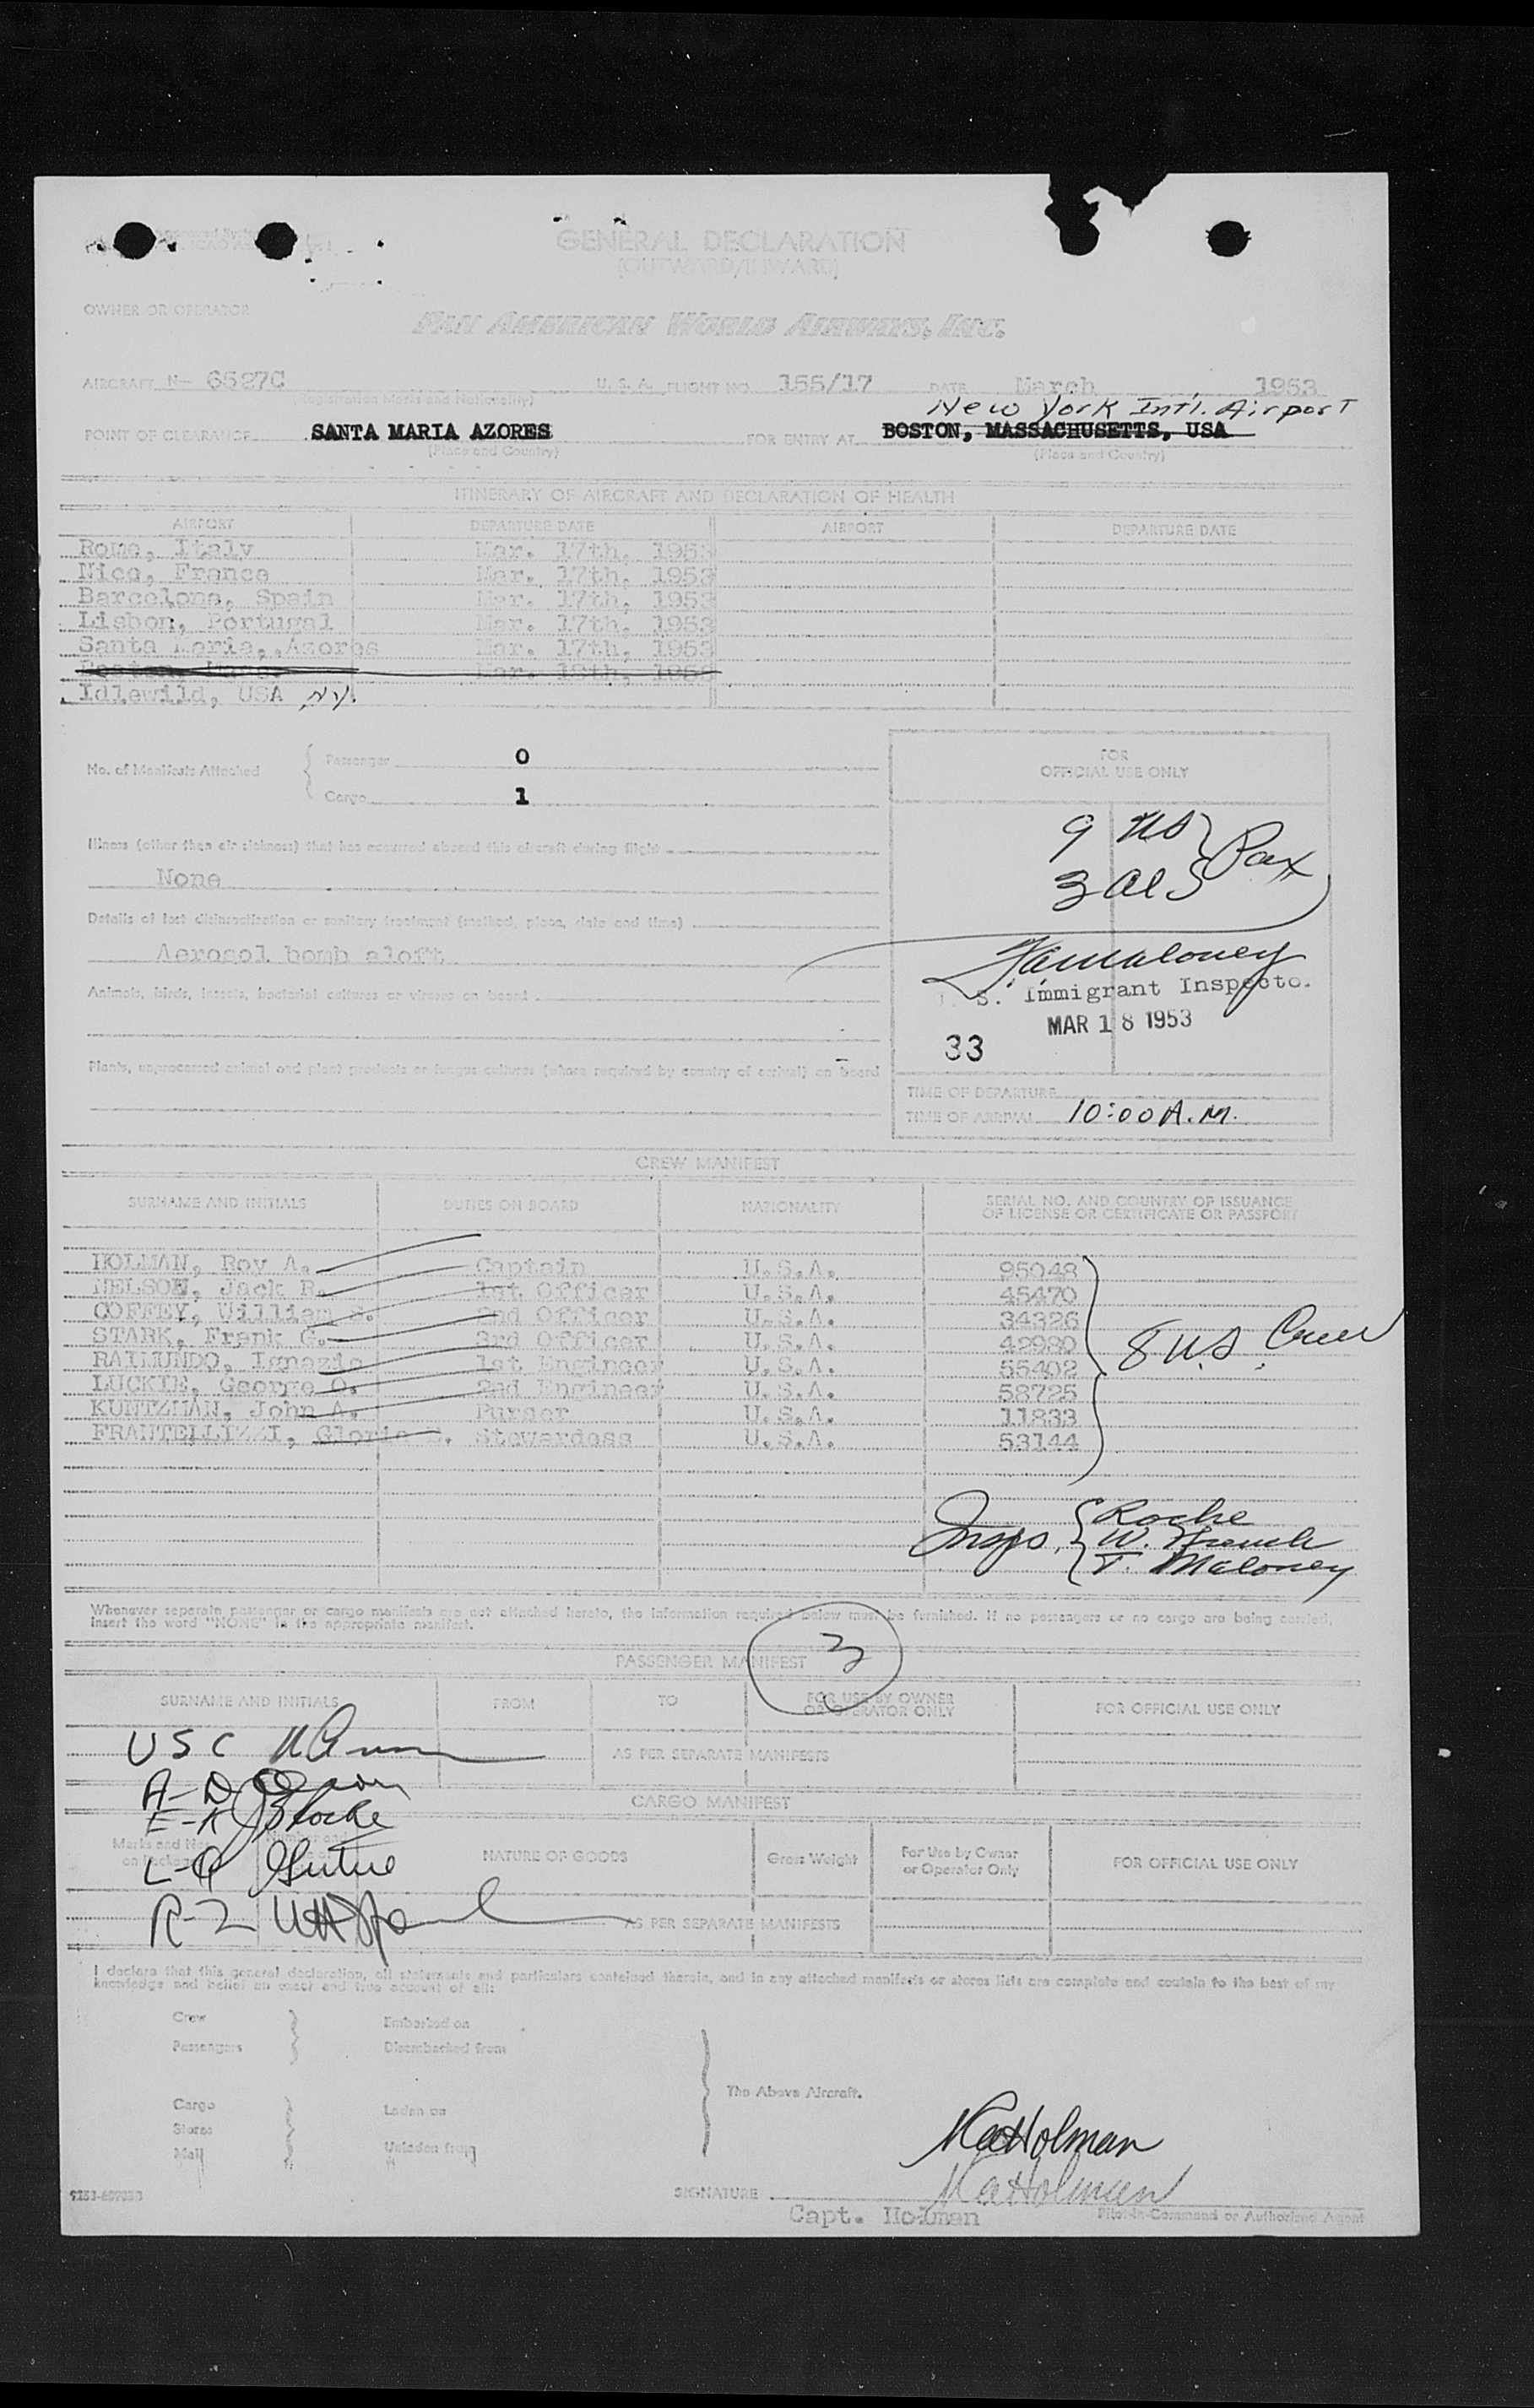 GENERAL DECLARATION
(OUTWARD/INWARD)
OWNER OR OPERATOR
PAN AMERICAN WORLD AIRWAYS, INC.
AIRCRAFT N- 6527C U. S. A. FLIGHT NO. 155/17 DATE March 1953
(Registration Marks and Nationality)
New York Int'l. Airport
POINT OF CLEARANCE SANTA MARIA AZORES FOR ENTRY AT BOSTON, MASSACHUSETTS, USA
(Place and Country) (Place and Country)
ITINERARY OF AIRCRAFT AND DECLARATION OF HEALTH
AIRPORT DEPARTURE DATE AIRPORT DEPARTURE DATE
Rome, Italy Mar. 17th, 1953
Nice, France Mar. 17th, 1953
Barcelona, Spain Mar. 17th, 1953
Lisbon, Portugal Mar. 17th, 1953
Santa Maria, Azores Mar. 17th, 1953
Boston, Mar. 18th, 1953
Idlewild, USA N.Y.
No. of Manifests Attached { Passenger 0
Cargo 1
FOR
OFFICIAL USE ONLY
9 US } Pax
3 Al
Illness (other than air sickness) that has occurred aboard this aircraft during flight
None
Details of last disinsectization or sanitary treatment (method, place, date and time)
Aerosol bomb aloft
Animals, birds, insects, bacterial cultures or viruses on board
Plants, unprocessed animal and plant products or fungus cultures (where required by country of arrival) on board
Maloney
S. Immigrant Inspecto.
MAR 18 1953
33
TIME OF DEPARTURE
TIME OF ARRIVAL 10:00 A.M.
CREW MANIFEST
SURNAME AND INITIALS DUTIES ON BOARD NATIONALITY SERIAL NO. AND COUNTRY OF ISSUANCE
OF LICENSE OR CERTIFICATE OR PASSPORT
HOLMAN, Roy A. Captain U.S.A. 95048
NELSON, Jack R. 1st Officer U.S.A. 45470
COFFEY, William S. 2nd Officer U.S.A. 34326
STARK, Frank G. 3rd Officer U.S.A. 42980
RAIMUNDO, Ignazio 1st Engineer U.S.A. 55402
LUCKIE, George O. 2nd Engineer U.S.A. 58725
KUNTZMAN, John A. Purser U.S.A. 11833
FRANTELLIZZI, Gloria Stewardess U.S.A. 53144
8 U.S. Crew
Insps. { Roche
W. French
T. Maloney
Whenever separate passenger or cargo manifests are not attached hereto, the information required below must be furnished. If no passengers or no cargo are being carried,
insert the word "NONE" in the appropriate manifest.
3
PASSENGER MANIFEST
SURNAME AND INITIALS FROM TO FOR USE BY OWNER
OR OPERATOR ONLY FOR OFFICIAL USE ONLY
USC
AS PER SEPARATE MANIFESTS
A-D
CARGO MANIFEST
E-K
Marks and Nos.
on Packages
NATURE OF GOODS Gross Weight For Use by Owner
or Operator Only FOR OFFICIAL USE ONLY
L-Q
R-Z
AS PER SEPARATE MANIFESTS
I declare that this general declaration, all statements and particulars contained therein, and in any attached manifests or stores lists are complete and contain to the best of my
knowledge and belief an exact and true account of all:
Crew Embarked on
Passengers Disembarked from
The Above Aircraft.
Cargo Laden on
Stores
Mail Unladen from
RA Holman
SIGNATURE RA Holman
Capt. Holman Pilot-in-Command or Authorized Agent